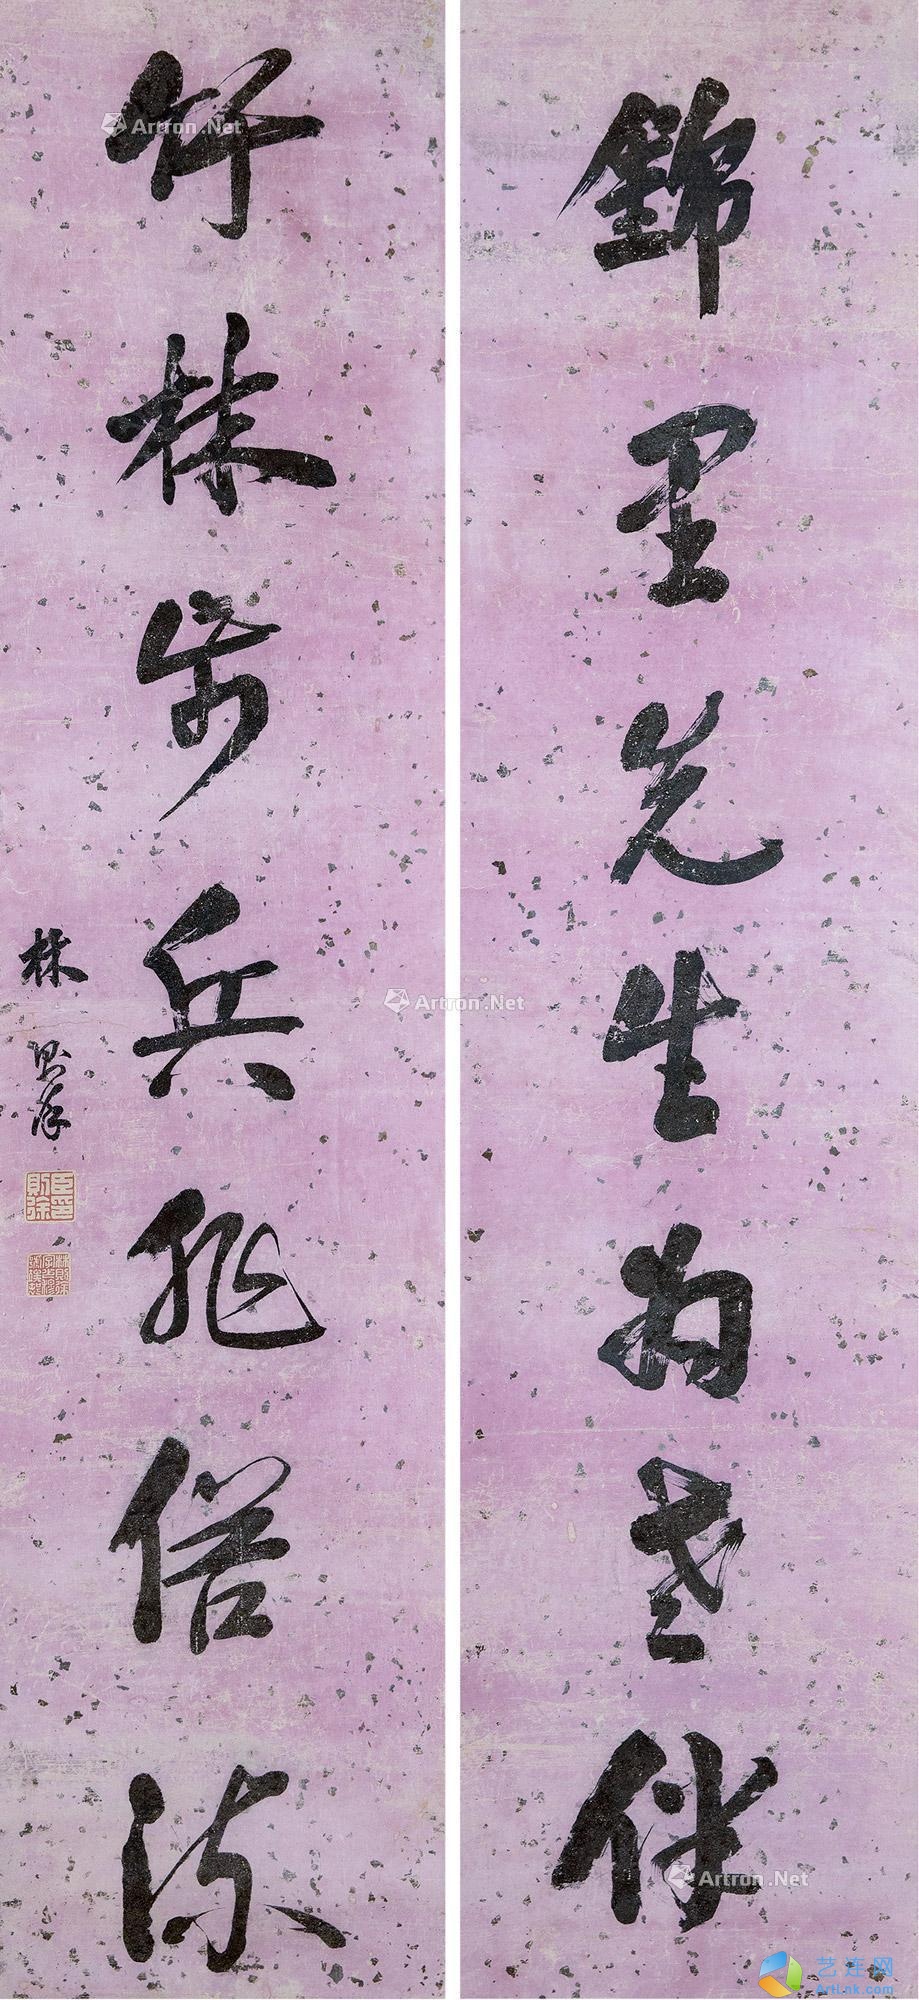 錦里先生為老伴
竹林步兵非俗流
林則徐
臣印則徐
Artron.Net
Artron.Net
Artron.Net
艺连网
Artlink.com